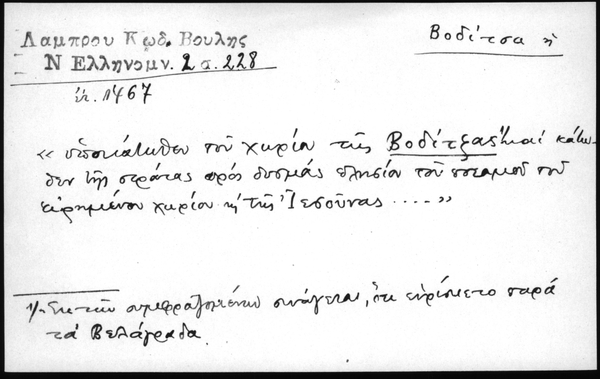 Λαμπρου Κωδ. Βουλης
Βοδίτσα ἡ
Ν Ελληνομν. 2 σ. 228
ἔτ. 1467
« ὑποκάτωθεν τοῦ χωρίου τῆς Βοδίτζας¹⁾ καὶ κάτω-
θεν τῆς στράτας πρὸς δυσμὰς πλησίον τοῦ ποταμοῦ τοῦ
εἰρημένου χωρίου τῆς .... »
1/. Ἐκ τῶν συμφραζομένων συνάγεται, ὅτι εὑρίσκετο παρὰ
τὰ Βελάγραδα.